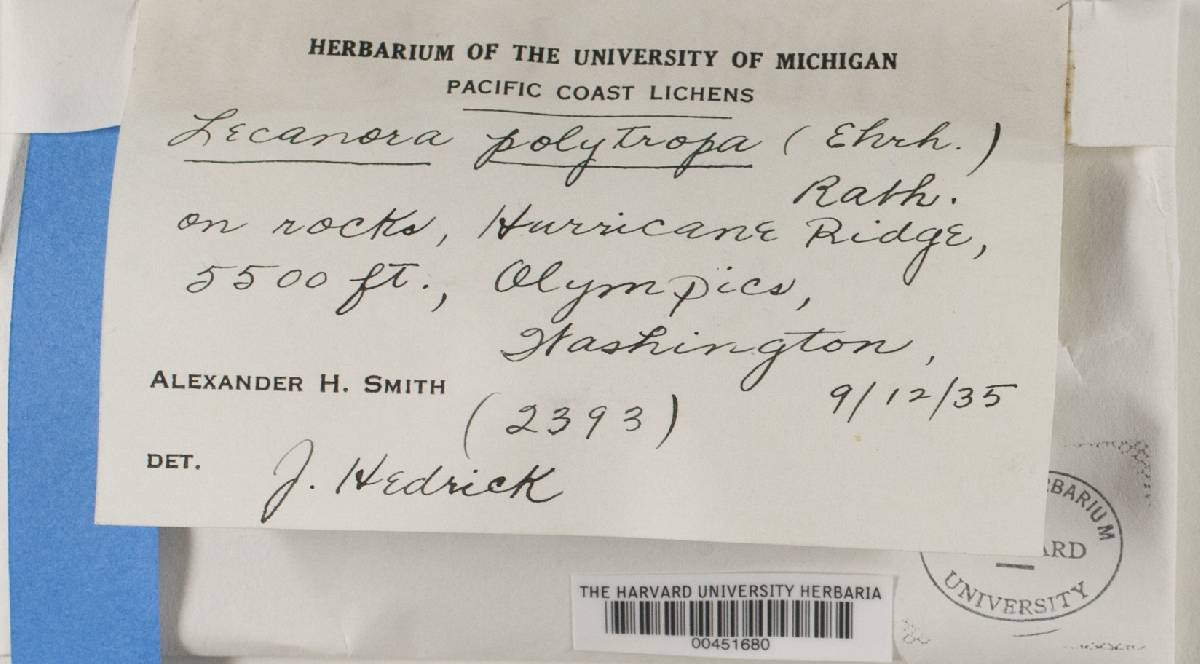 HERBARIUM OF THE UNIVERSITY OF MICHIGAN
PACIFIC COAST LICHENS
Lecanora polytropa (Ehrh.)
Rabh.
on rocks, Hurricane Ridge,
5500 ft., Olympics,
Washington,
ALEXANDER H. SMITH
9/12/35
(2393)
DET. J. Hedrick
THE HARVARD UNIVERSITY HERBARIA
00451680
UNIVERSITY